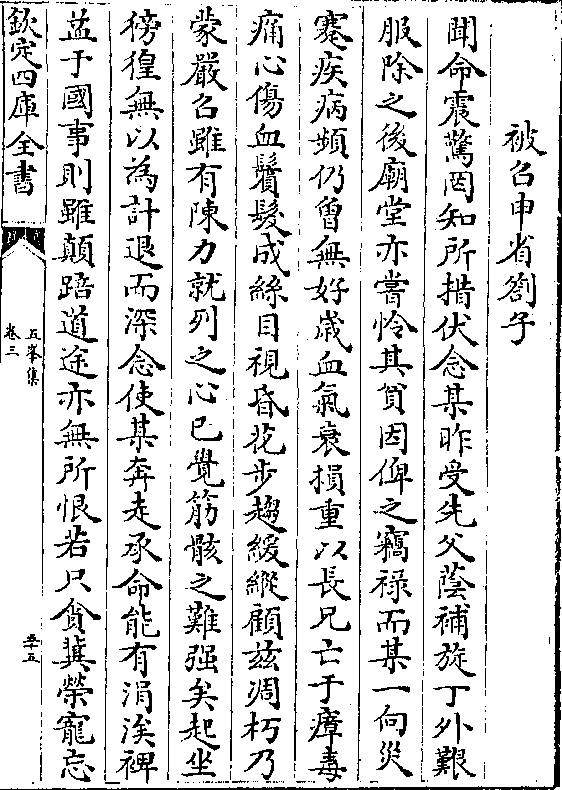 被召申省劄子
聞命震驚罔知所措伏念某昨受先父蔭補旋丁外艱
服除之後廟堂亦嘗怜其貧因俾之竊祿而某一向災
蹇疾病頻仍曾無好歲血氣衰損重以長兄亡于瘴毒
痛心傷血鬢髮成絲目視昏花步趨緩縱顧茲凋朽乃
蒙嚴召雖有陳力就列之心已覺筋骸之難强矣起坐
徬徨無以為計退而深念使某奔走承命能有涓涘裨
益于國事則雖顛踣道途亦無所恨若只貪冀榮寵忘
欽定四庫全書
五峯集
卷三
五十五